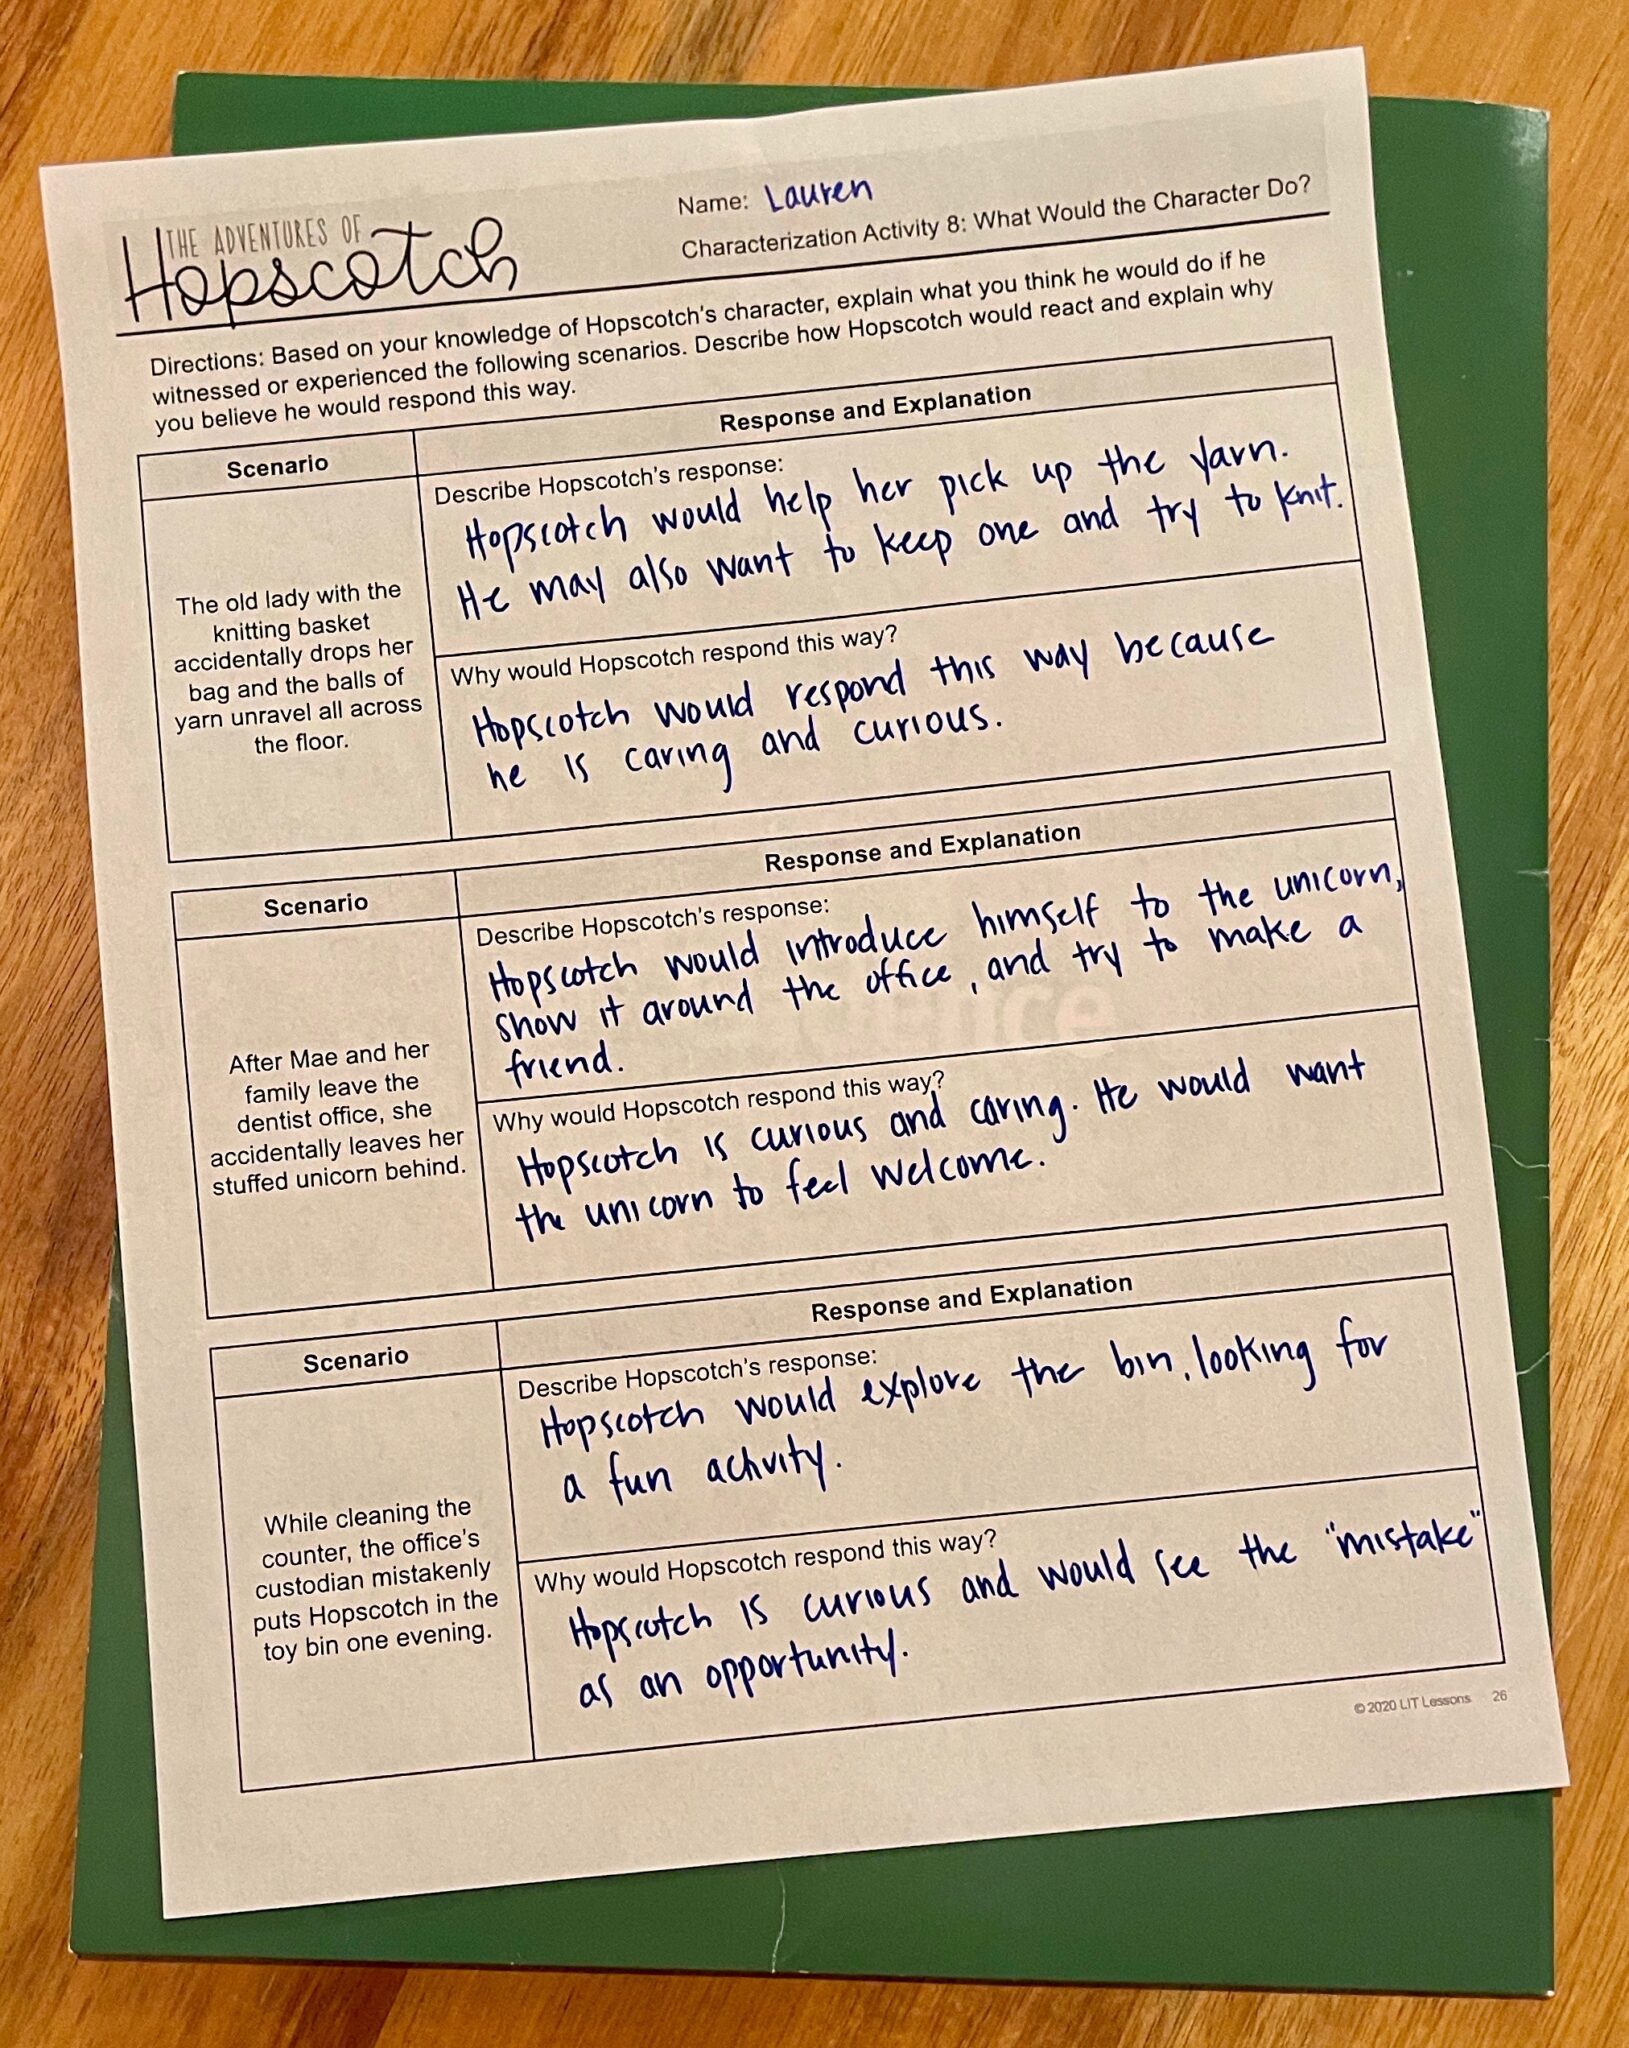 Name: Lauren
THE ADVENTURES OF
Hopscotch
Characterization Activity 8: What Would the Character Do?
Directions: Based on your knowledge of Hopscotch's character, explain what you think he would do if he
witnessed or experienced the following scenarios. Describe how Hopscotch would react and explain why
you believe he would respond this way.
Scenario
Response and Explanation
The old lady with the
knitting basket
accidentally drops her
bag and the balls of
yarn unravel all across
the floor.
Describe Hopscotch's response:
Hopscotch would help her pick up the yarn.
He may also want to keep one and try to knit.
Why would Hopscotch respond this way?
Hopscotch would respond this way because
he is caring and curious.
Scenario
Response and Explanation
After Mae and her
family leave the
dentist office, she
accidentally leaves her
stuffed unicorn behind.
Describe Hopscotch's response:
Hopscotch would introduce himself to the unicorn,
show it around the office, and try to make a
friend.
Why would Hopscotch respond this way?
Hopscotch is curious and caring. He would want
the unicorn to feel welcome.
Scenario
Response and Explanation
While cleaning the
counter, the office's
custodian mistakenly
puts Hopscotch in the
toy bin one evening.
Describe Hopscotch's response:
Hopscotch would explore the bin, looking for
a fun activity.
Why would Hopscotch respond this way?
Hopscotch is curious and would see the "mistake"
as an opportunity.
© 2020 LIT Lessons 26